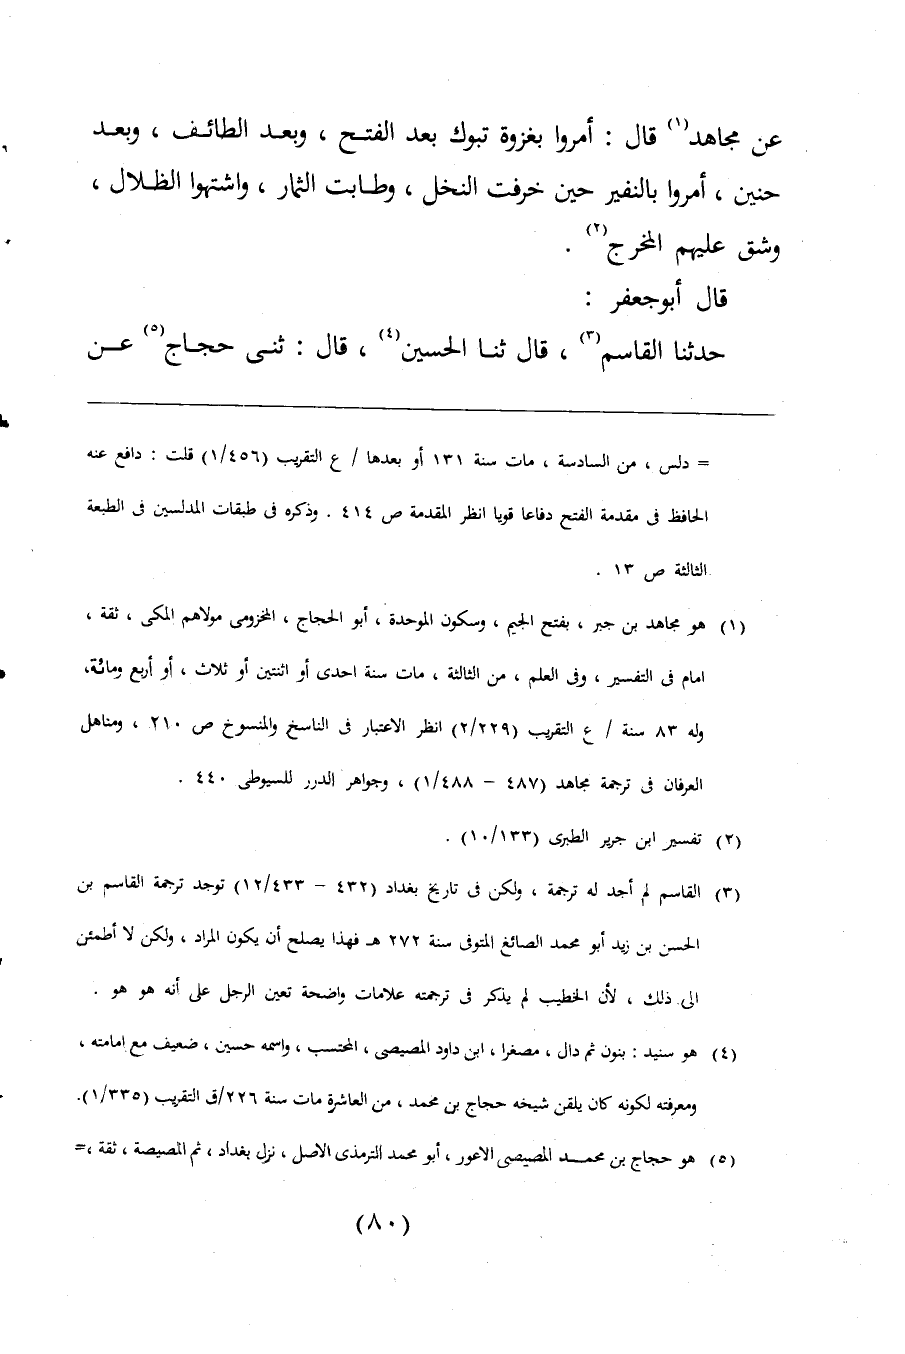 عن مجاهد(١) قال : أمروا بغزوة تبوك بعد الفتـح ، وبعـد الطائـف ، وبعـد
حنين ، أمروا بالنفير حين خرفت النخل ، وطـابت الثمار ، واشتهوا الظـلال ،
وشق عليهم المخرج(٢) .
قال أبوجعفر :
حدثنا القاسم(٣) ، قال ثنـا الحسين(٤) ، قال : ثنـى حجـاج(٥) عـــن
= دلس ، من السادسة ، مات سنة ١٣١ أو بعدها / ع التقريب (١/٤٥٦) قلت : دافع عنه
الحافظ فى مقدمة الفتح دفاعا قويا انظر المقدمة ص ٤١٤ . وذكره فى طبقات المدلسين فى الطبعة
الثالثة ص ١٣ .
(١) هو مجاهد بن جبر ، بفتح الجيم ، وسكون الموحدة ، أبو الحجاج ، المخزومى مولاهم المكى ، ثقة ،
امام فى التفسير ، وفى العلم ، من الثالثة ، مات سنة احدى أو اثنتين أو ثلاث ، أو أربع ومائة،
وله ٨٣ سنة / ع التقريب (٢/٢٢٩) انظر الاعتبار فى الناسخ والمنسوخ ص ٢١٠ ، ومناهل
العرفان فى ترجمة مجاهد (٤٨٧ – ١/٤٨٨) ، وجواهر الدرر للسيوطى ٤٤٠ .
(٢) تفسير ابن جرير الطبرى (١٠/١٣٣) .
(٣) القاسم لم أجد له ترجمة ، ولكن فى تاريخ بغداد (٤٣٢ – ١٢/٤٣٣) توجد ترجمة القاسم بن
الحسن بن زيد أبو محمد الصائغ المتوفى سنة ٢٧٢ هـ فهذا يصلح أن يكون المراد ، ولكن لا أطمئن
الى ذلك ، لأن الخطيب لم يذكر فى ترجمته علامات واضحة تعين الرجل على أنه هو هو .
(٤) هو سنيد : بنون ثم دال ، مصغرا ، ابن داود المصيصى ، المحتسب ، واسمه حسين ، ضعيف مع امامته ،
ومعرفته لكونه كان يلقن شيخه حجاج بن محمد ، من العاشرة مات سنة ٢٢٦/ق التقريب (١/٣٣٥).
(٥) هو حجاج بن محمـــد المصيصى الاعور ، أبو محمد الترمذى الاصل ، نزل بغداد ، ثم المصيصة ، ثقة ،=
(٨٠)